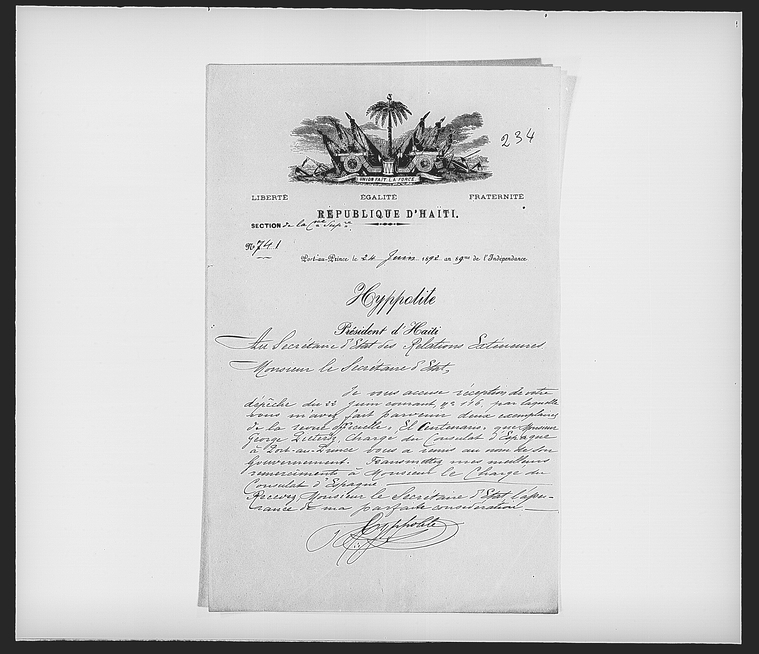 234
L'UNION FAIT LA FORCE
LIBERTÉ ÉGALITÉ FRATERNITÉ
RÉPUBLIQUE D'HAÏTI.
SECTION de la
No 741
Port-au-Prince le 24 Juin 1892 an 89me de l'Indépendance
Hyppolite
Président d'Haïti
Au Secrétaire d'Etat des Relations Extérieures
Monsieur le Secrétaire d'Etat,
Je vous accuse réception de votre
dépêche du 23 Juin courant, par laquelle
vous m'avez fait parvenir deux exemplaires
de la revue officielle, El Centenario, que Monsieur
George Chargé du Consulat d'Espagne
à Port-au-Prince vous a remis au nom de son
Gouvernement. Transmettez mes meilleurs
remerciments à Monsieur le Chargé du
Consulat d'Espagne
Recevez, Monsieur le Secrétaire d'Etat, l'assu-
rance de ma parfaite considération
Hyppolite